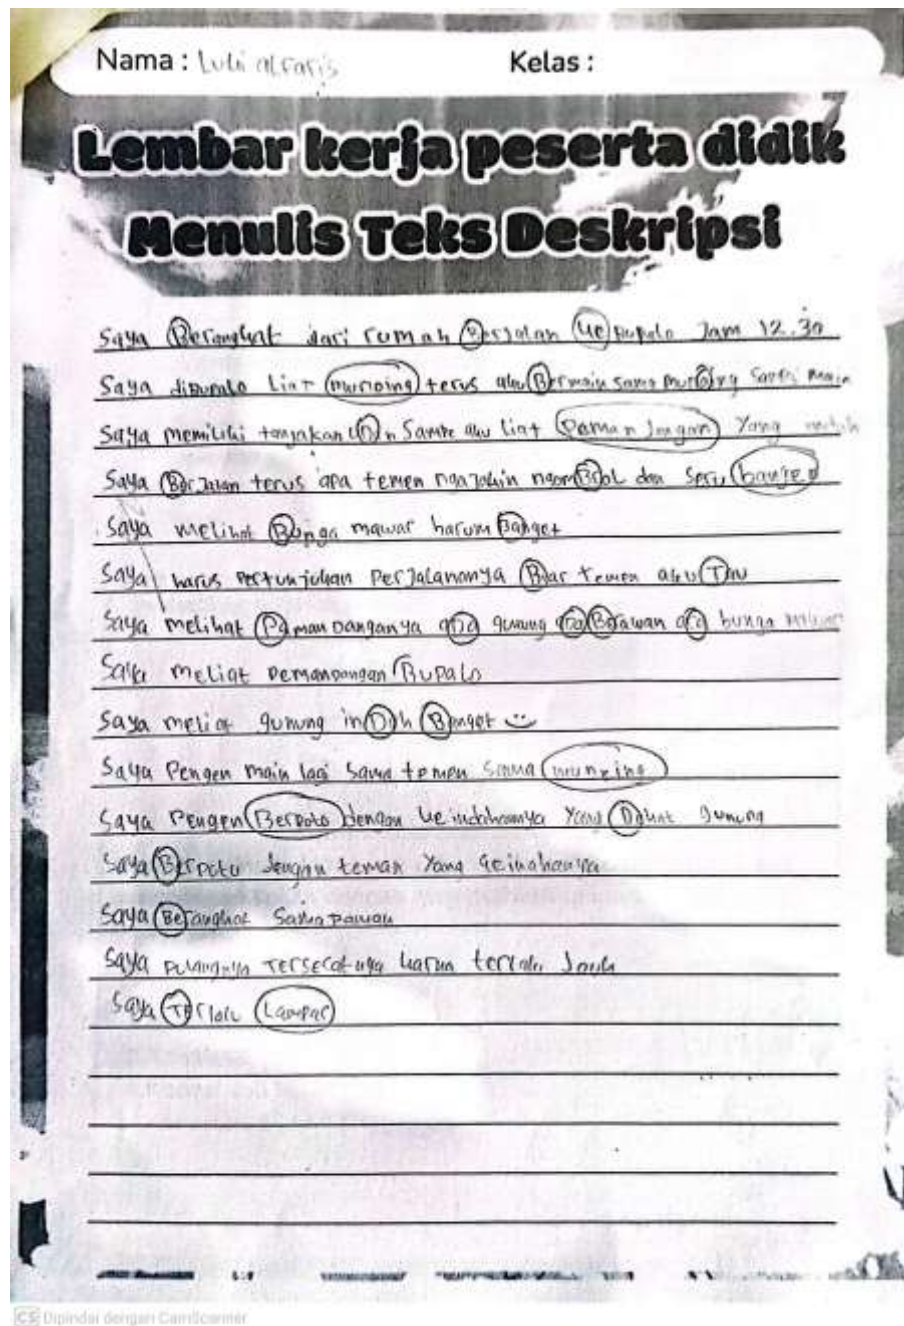 Nama : Luki alfaris Kelas :
Lembar kerja peserta didik
Menulis Teks Deskripsi
Saya Berangkat dari rumah Berjalan ke pupalo Jam 12.30
Saya dibupalo Liat terus aku Bermain sama main
Saya memiliki tanjakan sampe aku liat Pamanjangan Yang
Saya Berjalan terus apa temen ngajakin ngomBrol dan seru banjed
Saya melihat Bunga mawar harum Banget
Saya harus pertunjukan perjalananya Biar temen aku Tau
Saya melihat Pamandanganya aDa gunung aDa aDa bunga
Saya meliat pemanpangan Bupalo
Saya meliat gunung inDah Banget
Saya Pengen main lagi sama temen sama
Saya Pengen Berpoto dengan keindahannya Yang Dekat gunung
Saya Berpoto dengan teman Yang
Saya Berangkat sama pawau
Saya pulangnya karna terlalu Jauh
Saya Terlalu Lampar
CS Dipindai dengan CamScanner